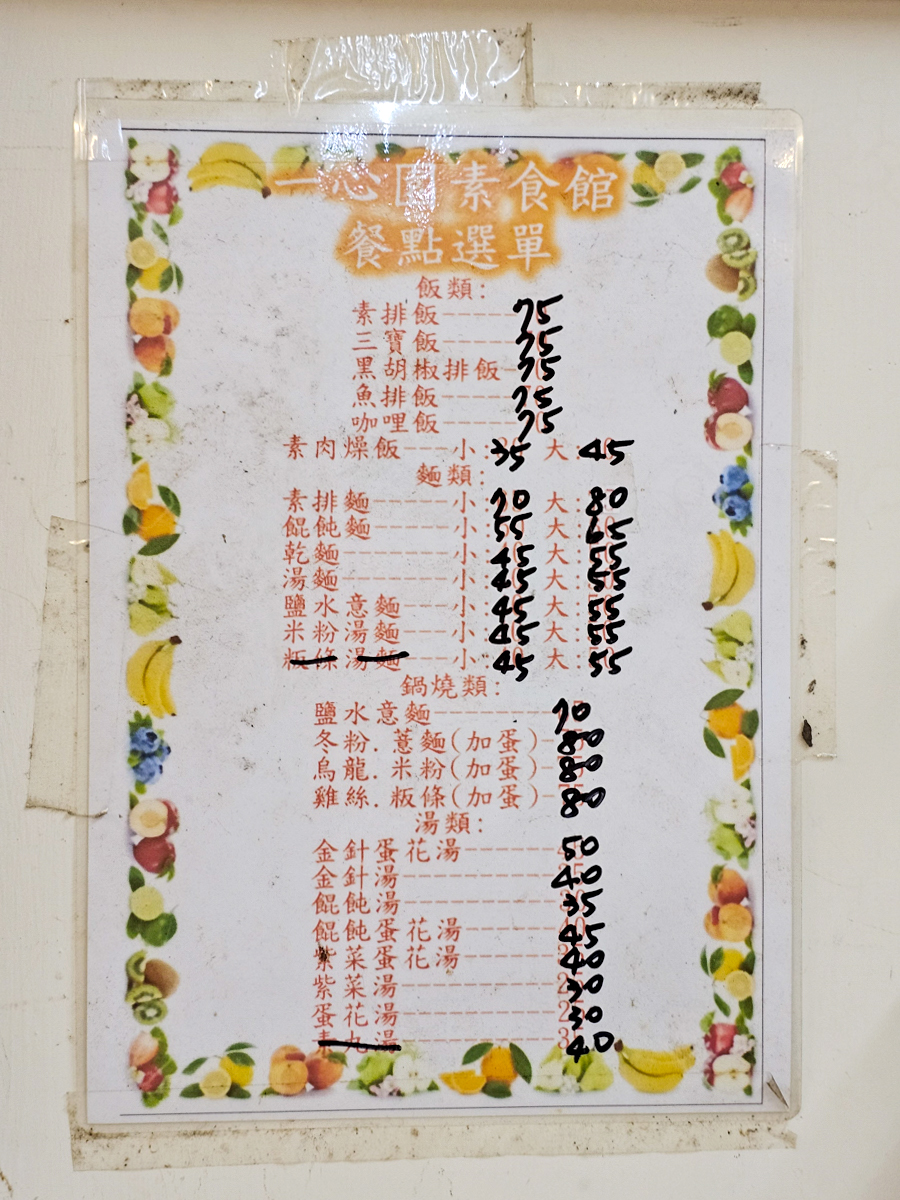 一心園素食館
餐點選單
飯類:
素排飯------75
三寶飯------75
黑胡椒排飯-75
魚排飯------75
咖哩飯------75
素肉燥飯---小:35 大:45
麵類:
素排麵------小:70 大:80
餛飩麵------小:55 大:65
乾麵--------小:45 大:55
湯麵--------小:45 大:55
鹽水意麵---小:45 大:55
米粉湯麵---小:45 大:55
粄條湯麵---小:45 大:55
鍋燒類:
鹽水意麵---------70
冬粉.薏麵(加蛋)-80
烏龍.米粉(加蛋)-80
雞絲.粄條(加蛋)-80
湯類:
金針蛋花湯-------50
金針湯-----------40
餛飩湯-----------35
餛飩蛋花湯-------45
紫菜蛋花湯-------40
紫菜湯-----------30
蛋花湯-----------30
素丸湯-----------40